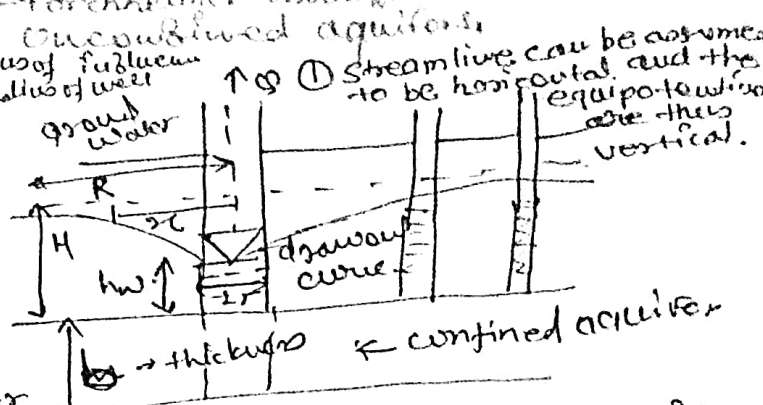 unconfined aquifers.
us of influence
dius of well
① Streamline can be assume
to be horizontal and the
equipotential
are thus
vertical.
Q
ground
water
R
x
H
hw
2r
drawdown
curve
b → thickness
← confined aquifer